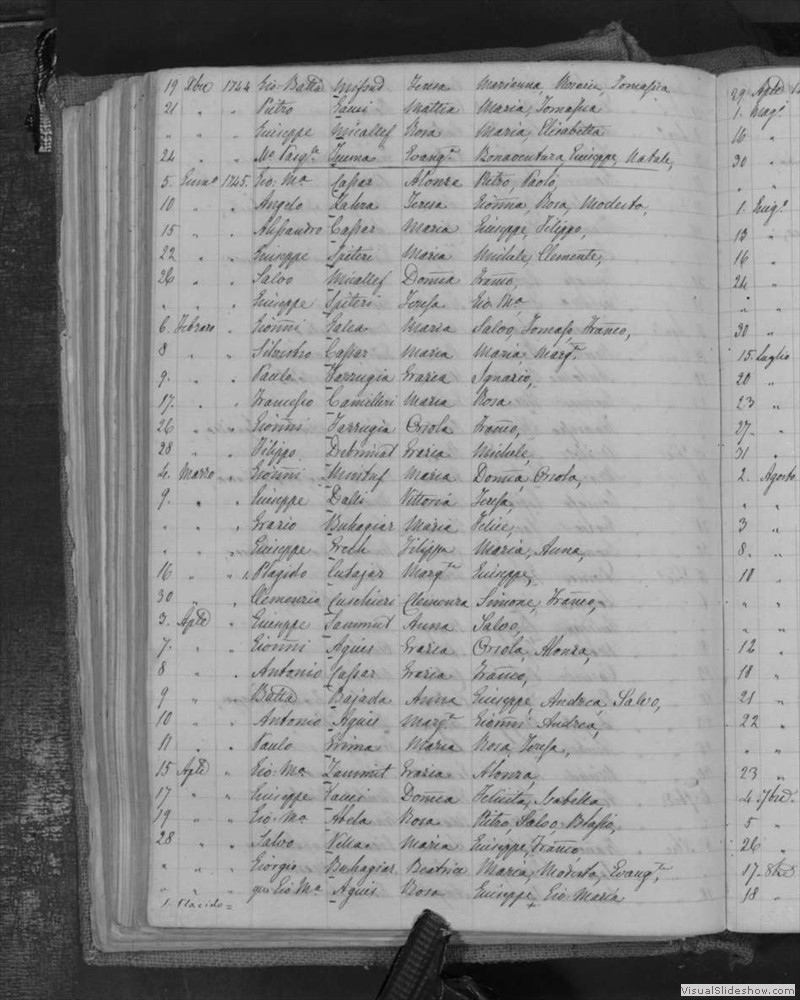 19 Xbre 1744 Gio Batta Mifsud Teresa Marianna, Rosaria, Tomasica
21 " " Pietro Xauei Mattia Maria, Tomasica
" " " Giuseppe Micallef Rosa Maria, Elisabetta
24 " " Mo Pasqle Zuema Evangta Bonaventura, Giuseppe, Natale,
5. Gennaro 1745. Gio: Ma Cassar Alonza Pietro, Paolo,
10 " " Angelo Xabra Teresa Gionna, Rosa, Modesta,
15 " " Alessandro Cassar Maria Giuseppe, Filippo,
22 " " Giuseppe Spiteri Maria Michele, Clemente,
26 " " Salvo Micallef Domca Franco,
" " " Giuseppe Spiteri Teresa Gio Ma
6. Febraro " Gionni Galea Maria Salvo, Tomaso, Franco,
8 " " Silvestro Cassar Maria Maria, Margta
9. " " Paulo Farrugia Grazia Ignazio,
17. " " Francesco Camilleri Maria Rosa
26 " " Gionni Farrugia Orsola Franco,
28 " " Filippo Grazia Michele,
4. Marzo " Gionni Maria Domca, Orsola,
9. " " Giuseppe Dalli Vittoria Teresa,
" " " Grazio Buhagiar Maria Felice,
" " " Giuseppe Grech Filippa Maria, Anna,
16 " " 1. Placido Cutajar Margta Giuseppe,
30 " " Clemenzio Cuschieri Clemenza Simone, Franco,
3. Aple " Giuseppe Sammut Anna Salvo,
7. " " Gionni Agius Grazia Orsola, Alonza,
8 " " Antonio Cassar Grazia Franco,
9 " " Batta Bajada Anna Giuseppe, Andrea, Salvo,
10 " " Antonio Agius Margta Gionni, Andrea,
11 " " Paulo Grima Maria Rosa, Teresa,
15 Aple " Gio: Ma Zammit Grazia Alonza,
17 " " Giuseppe Xauei Domca Felicita, Isabella,
19 " " Gio: Ma Abela Rosa Pietro, Salvo, Blasio,
28 " " Salvo Vella Maria Giuseppe, Franco
" " " Giorgio Buhagiar Beatrice Marca, Modesta, Evangta,
" " " Gio Ma Agius Rosa Giuseppe, Gio Maria
1. Placido =
29 Aple 1
1. Magº
16 "
30 "
" "
1. Giugº
13 "
16 "
24 "
" "
30 "
15. Luglio
20 "
23 "
27. "
31 "
2. Agosto
" "
3 "
8. "
10 "
" "
" "
12 "
18 "
21 "
22 "
" "
23 "
4 7bre
5 "
26 "
17. 8bre
18 "
VisualSlideshow.com